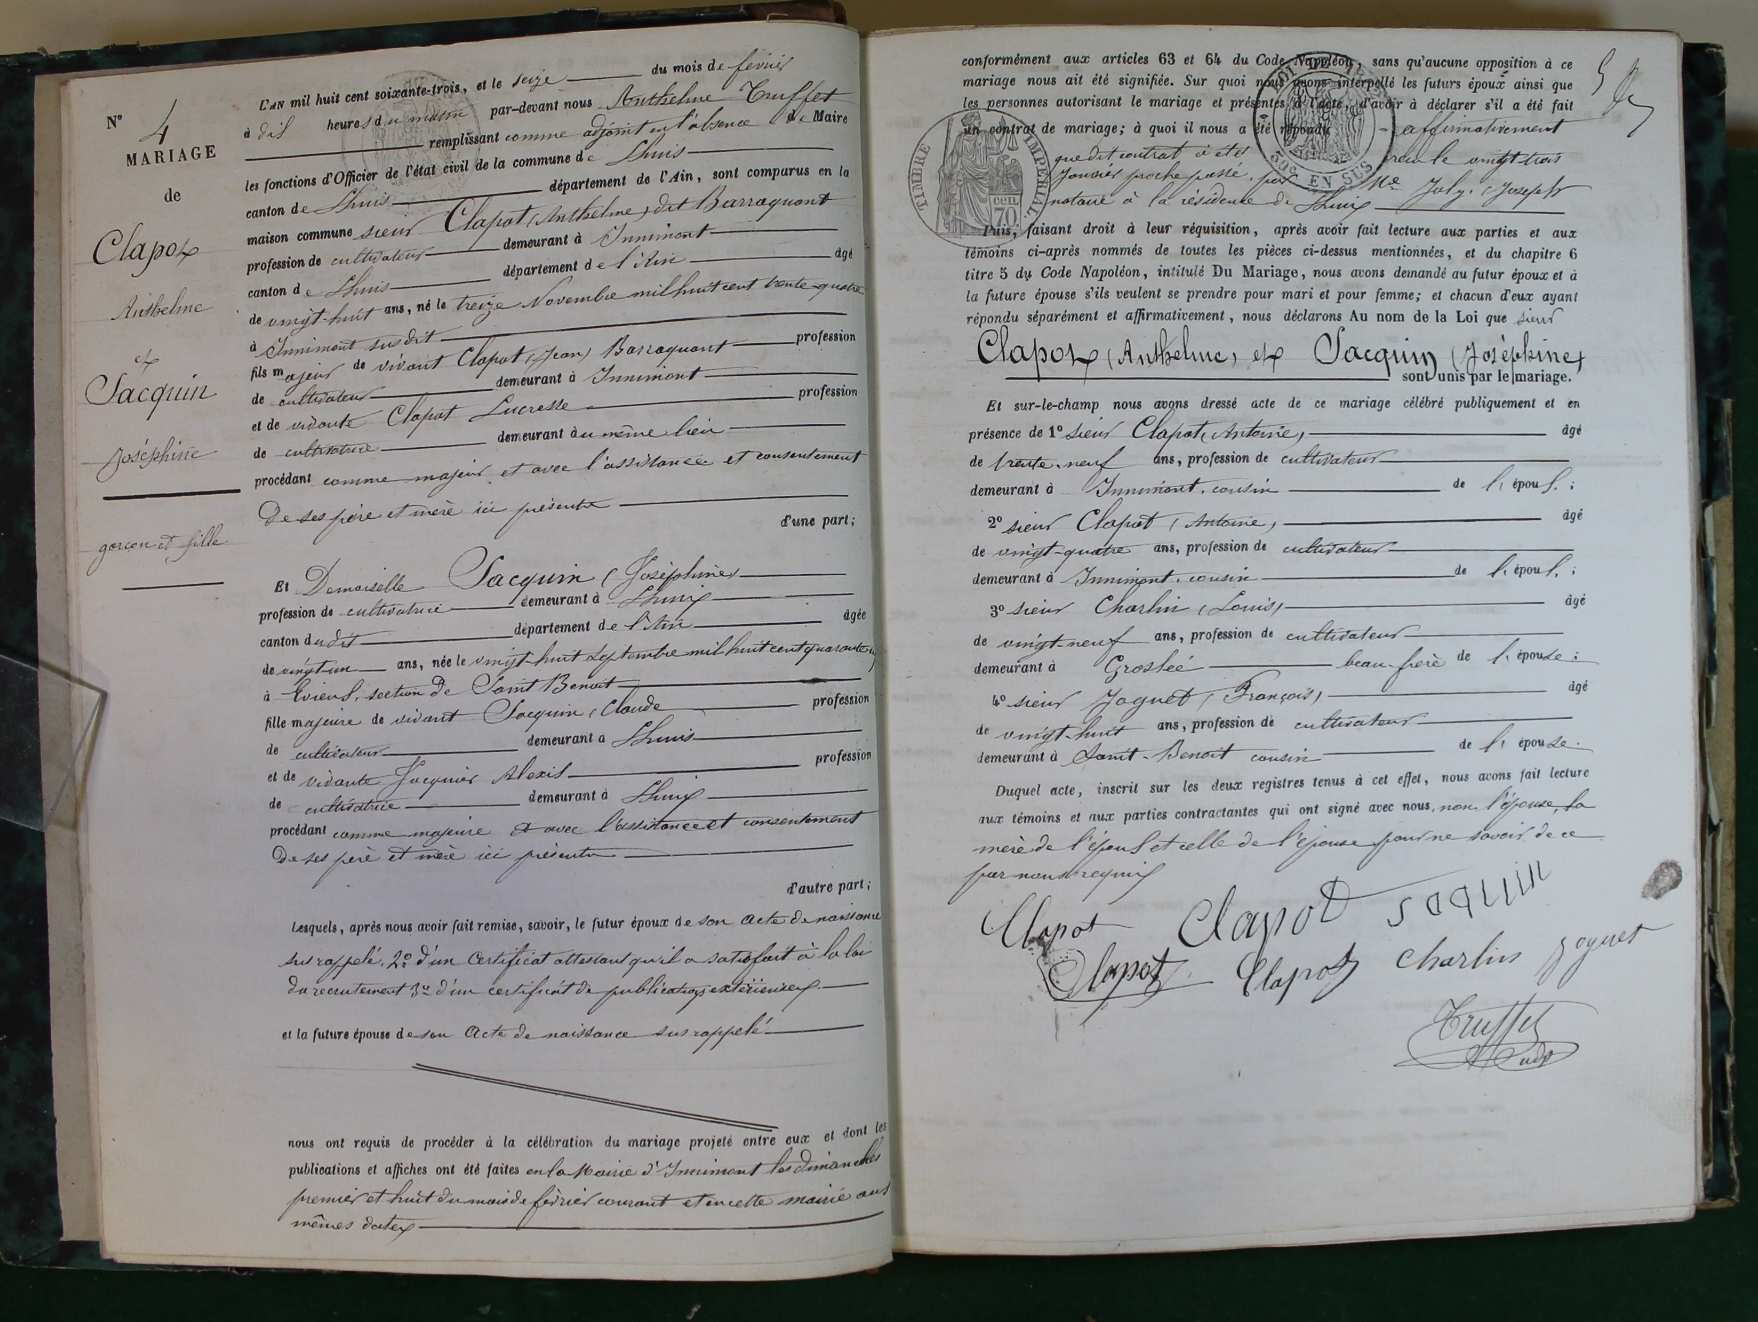 N° 4
MARIAGE
de
Clapot
Anthelme
et
Jacquin
Joséphine
garçon et fille
L'AN mil huit cent soixante-trois, et le seize du mois de février
à dix heures du matin par-devant nous Anthelme Truffet
remplissant comme adjoint en l'absence de Maire
les fonctions d'Officier de l'état civil de la commune de Lhuis
canton de Lhuis département de l'Ain, sont comparus en la
maison commune sieur Clapot (Anthelme) dit Barraquant
profession de cultivateur demeurant à Innimont
canton de Lhuis département de l'Ain âgé
de vingt-huit ans, né le treize Novembre mil huit cent trente-quatre
à Innimont susdit
fils majeur de vivant Clapot (Jean) Barraquant profession
de cultivateur demeurant à Innimont
et de vivante Clapot Lucresse profession
de cultivatrice demeurant au même lieu
procédant comme majeur et avec l'assistance et consentement
de ses père et mère ici présents
d'une part;
Et Demoiselle Jacquin (Joséphine)
profession de cultivatrice demeurant à Lhuis
canton dudit département de l'Ain âgée
de vingt-un ans, née le vingt-huit Septembre mil huit cent quarante un
à section de Saint Benoit
fille majeure de vivant Jacquin (Claude profession
de cultivateur demeurant à Lhuis
et de vivante Jacquier Alexis profession
de cultivatrice demeurant à Lhuis
procédant comme majeure et avec l'assistance et consentement
de ses père et mère ici présents
d'autre part;
Lesquels, après nous avoir fait remise, savoir, le futur époux de son acte de naissance
sus rappelé, 2° d'un certificat attestant qu'il a satisfait à la loi
du recrutement 3° d'un certificat de publications extérieures
et la future épouse de son acte de naissance sus rappelé
nous ont requis de procéder à la célébration du mariage projeté entre eux et dont les
publications et affiches ont été faites en la Mairie d'Innimont les dimanches
premier et huit du mois de février courant et en cette mairie aux
mêmes dates
conformément aux articles 63 et 64 du Code Napoléon, sans qu'aucune opposition à ce
mariage nous ait été signifiée. Sur quoi nous avons interpellé les futurs époux ainsi que
les personnes autorisant le mariage et présentes à l'acte, d'avoir à déclarer s'il a été fait
un contrat de mariage; à quoi il nous a été répondu affirmativement
que dit contrat a été reçu le vingt trois
Janvier proche passé, par Me Joly (Joseph
notaire à la résidence de Lhuis
TIMBRE IMPERIAL
70 cen.
EN SUS
Puis, faisant droit à leur réquisition, après avoir fait lecture aux parties et aux
témoins ci-après nommés de toutes les pièces ci-dessus mentionnées, et du chapitre 6
titre 5 du Code Napoléon, intitulé Du Mariage, nous avons demandé au futur époux et à
la future épouse s'ils veulent se prendre pour mari et pour femme; et chacun d'eux ayant
répondu séparément et affirmativement, nous déclarons Au nom de la Loi que sieur
Clapot (Anthelme) et Jacquin (Joséphine)
sont unis par le mariage.
Et sur-le-champ nous avons dressé acte de ce mariage célébré publiquement et en
présence de 1° sieur Clapot (Antoine) âgé
de trente-neuf ans, profession de cultivateur
demeurant à Innimont, cousin de l'époux;
2° sieur Clapot (Antoine) âgé
de vingt-quatre ans, profession de cultivateur
demeurant à Innimont, cousin de l'époux;
3° sieur Charlin (Louis) âgé
de vingt-neuf ans, profession de cultivateur
demeurant à Groslée beau-frère de l'épouse;
4° sieur Joguet (François) âgé
de vingt-huit ans, profession de cultivateur
demeurant à Saint-Benoit cousin de l'épouse.
Duquel acte, inscrit sur les deux registres tenus à cet effet, nous avons fait lecture
aux témoins et aux parties contractantes qui ont signé avec nous, non l'épouse, la
mère de l'époux et celle de l'épouse pour ne savoir de ce
par nous requis
Clapot Clapot Jaquin
Clapot Clapot Charlin Joguet
Truffet
adjt